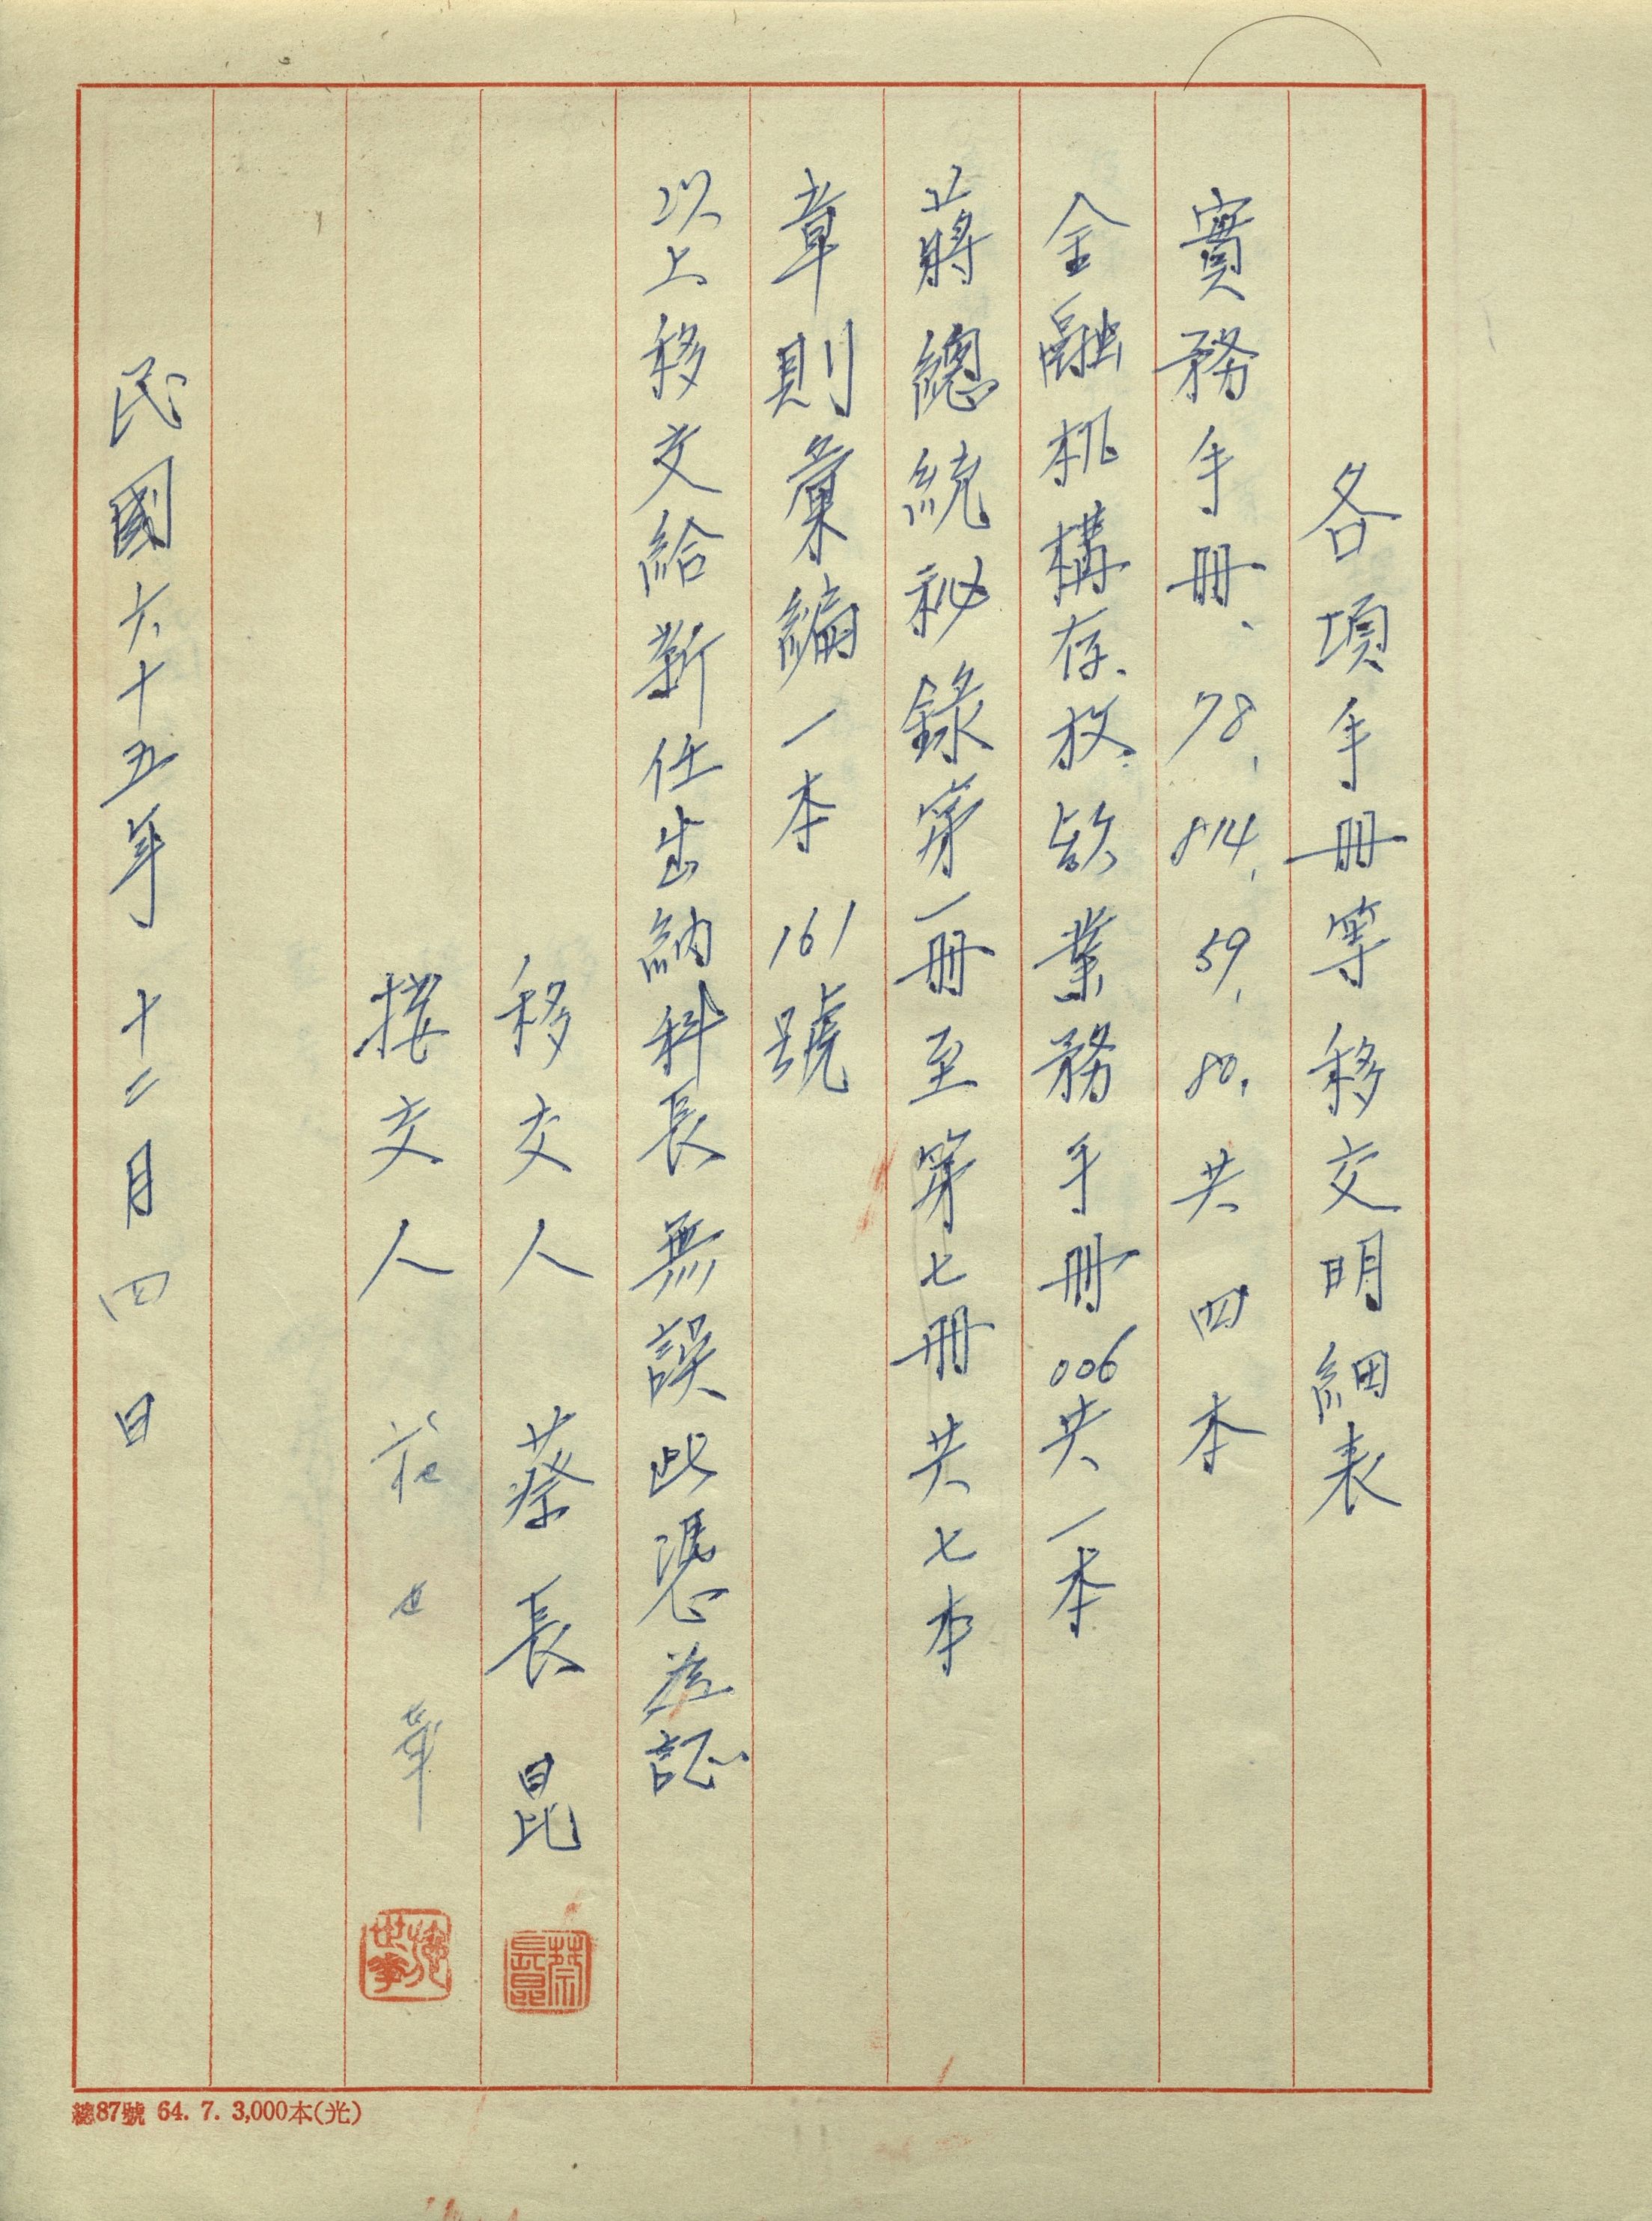 各項手冊等移交明細表
實務手冊、78, 814, 59, 80, 共四本
金融机構存放款業務手冊006共一本
蔣總統秘錄第一冊至第七冊共七本
章則彙編一本 161號
以上移交給新任出納科長無誤此憑為証
移交人 蔡長昆
蔡長昆
接交人 施世華
施世華
民國六十五年十二月四日
總87號 64. 7. 3,000本(光)